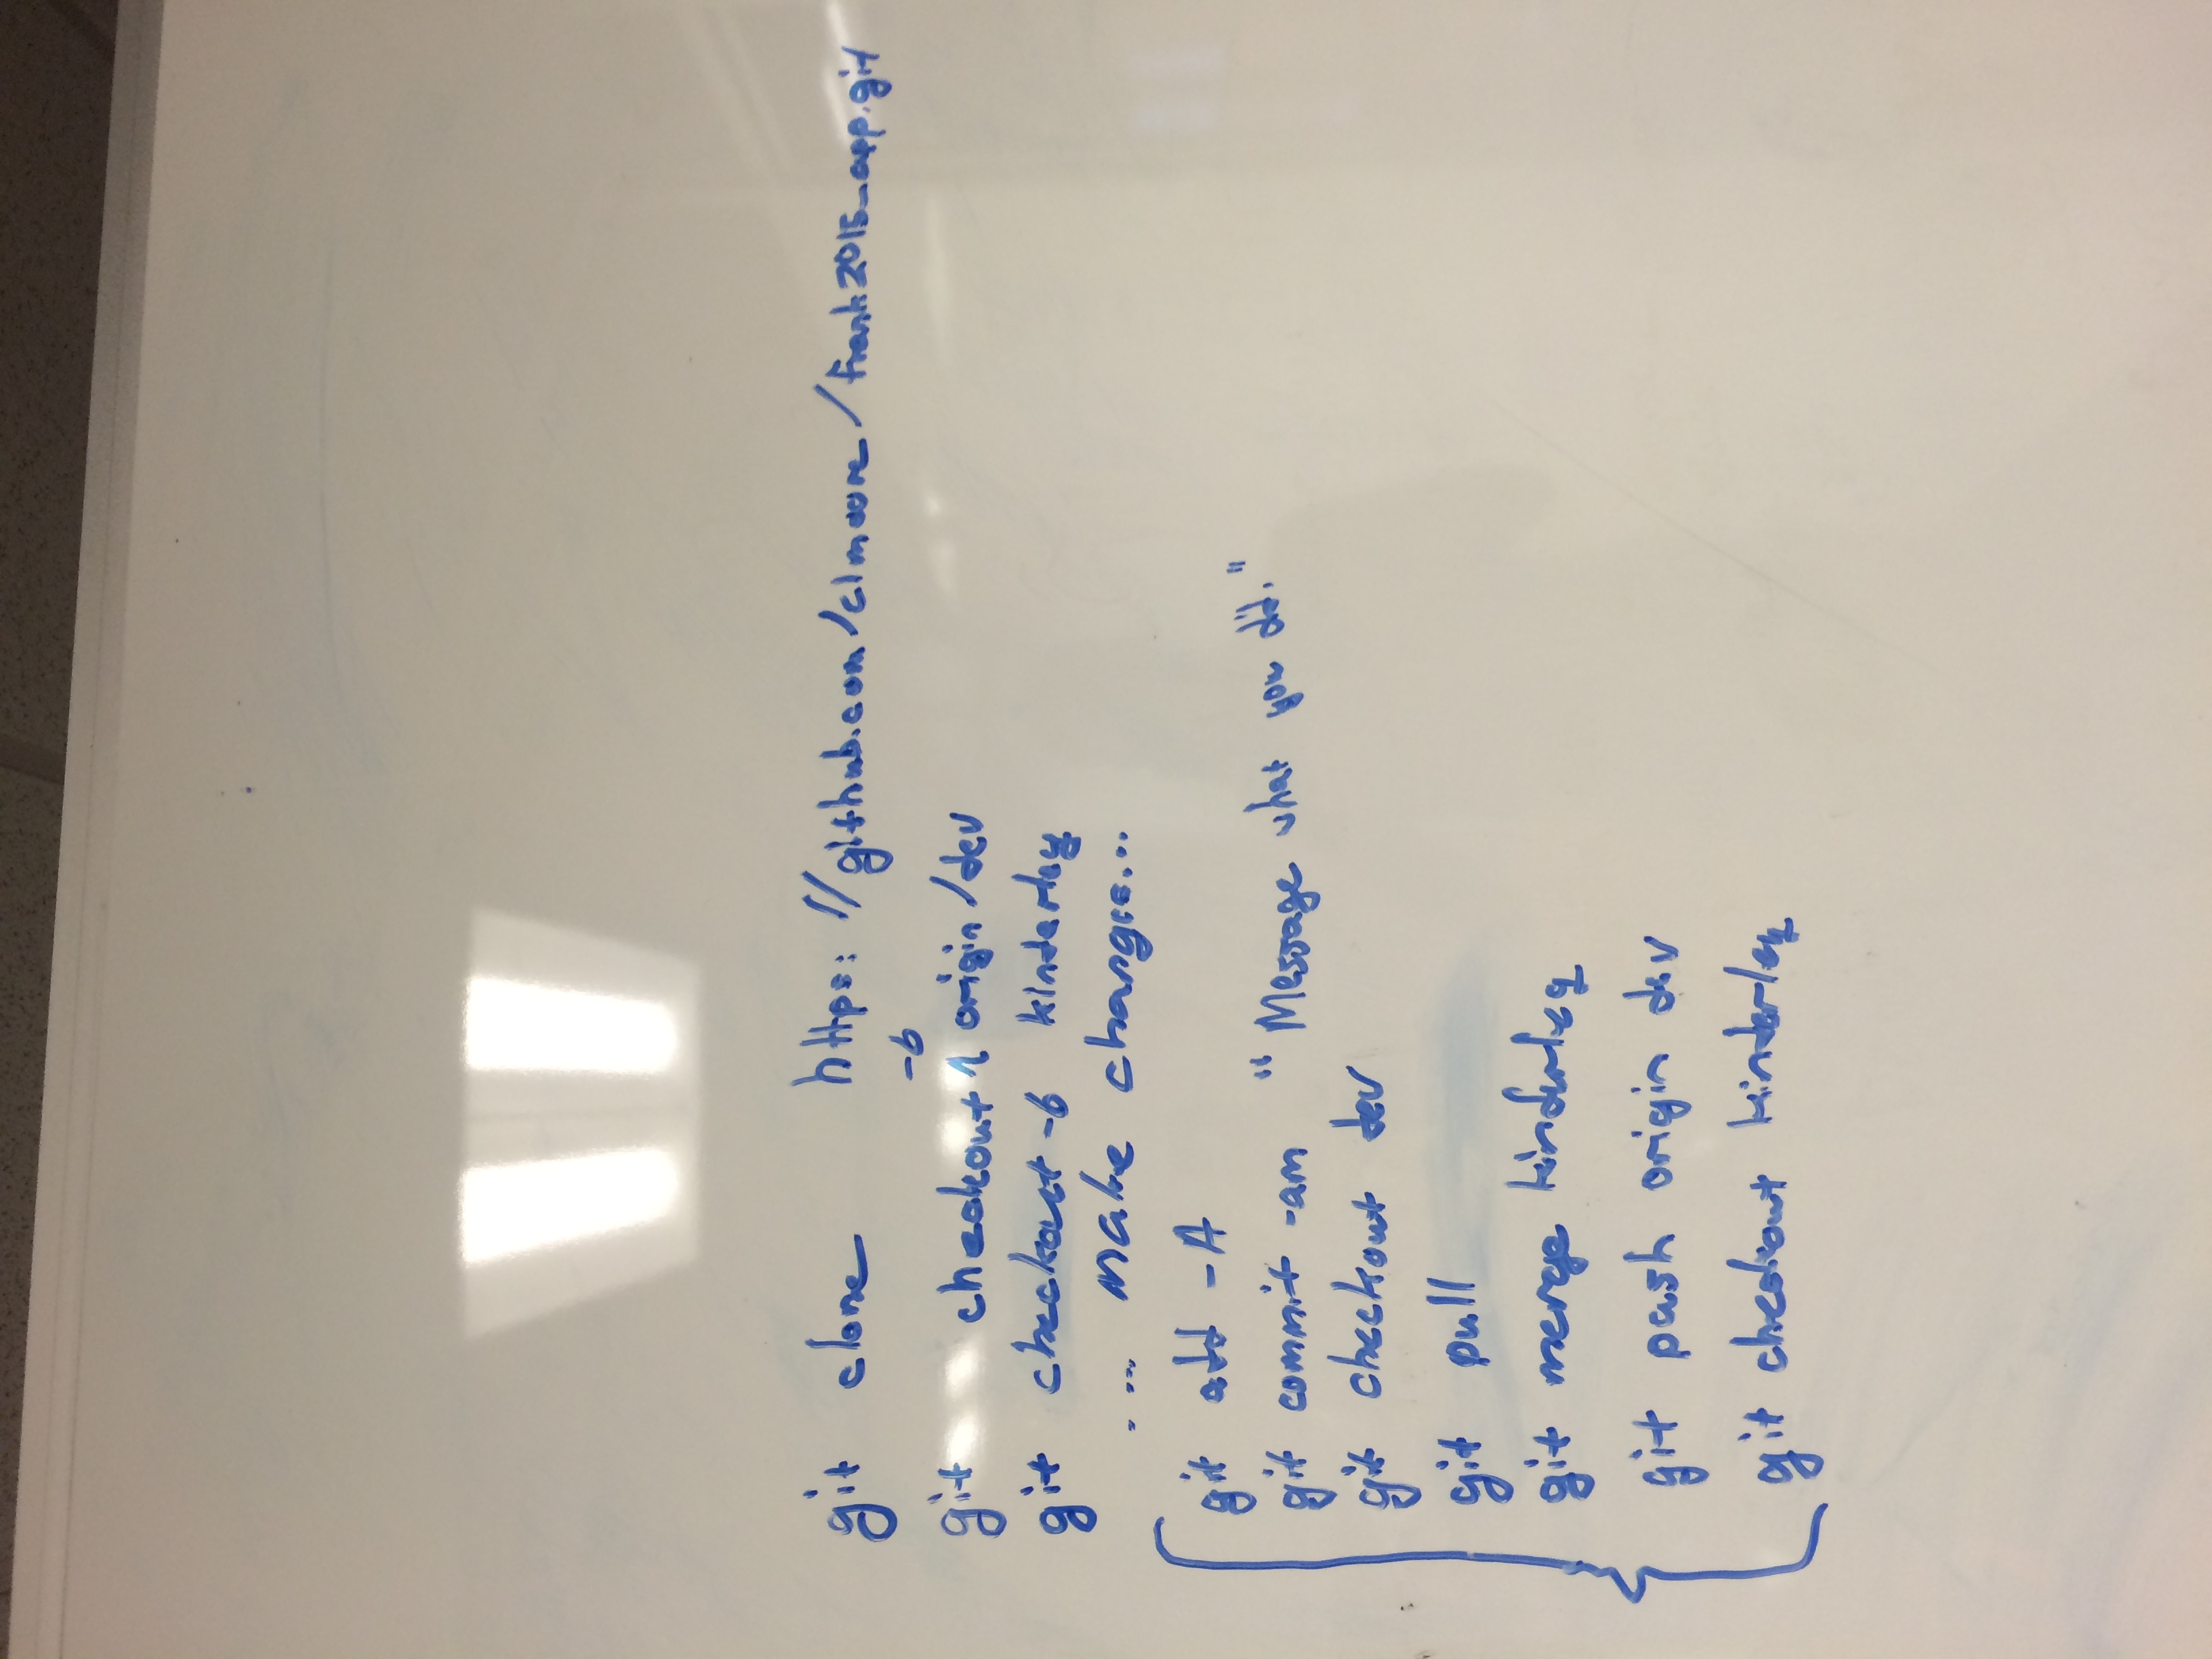 git clone https://github.com/clmoore/frank2015_app.git
-b
git checkout origin/dev
git checkout -b kinderley
.... make changes...
git add -A
git commit -am "Message what you did."
git checkout dev
git pull
git merge kinderley
git push origin dev
git checkout kinderley